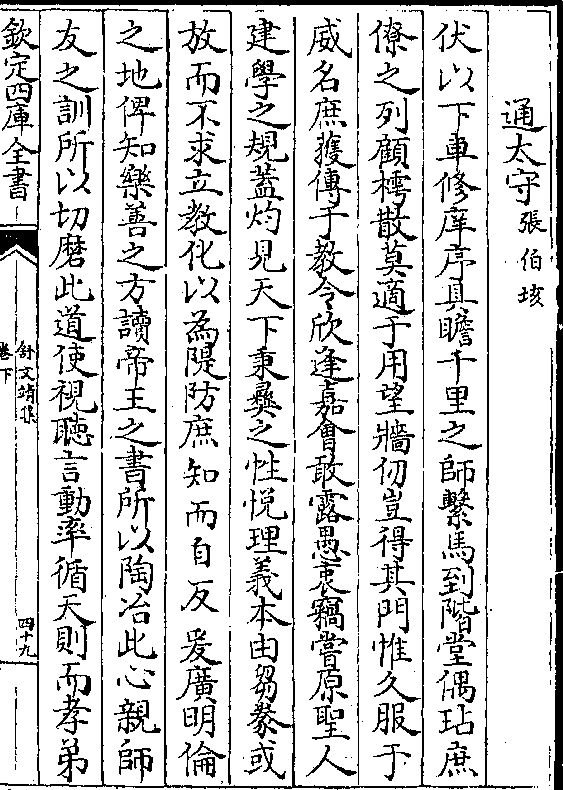 通太守張伯垓
伏以下車修庠序具瞻千里之師繫馬到階堂偶玷庶
僚之列顧樗散莫適于用望牆仞豈得其門惟久服于
威名庶獲傳于教令欣逢嘉會敢露愚衷竊嘗原聖人
建學之規蓋灼見天下秉彝之性悦理義本由芻豢或
放而不求立教化以為隄防庶知而自反爰廣明倫
之地俾知樂善之方讀帝王之書所以陶冶此心親師
友之訓所以切磨此道使視聽言動率循天則而孝弟
欽定四庫全書
舒文靖集
卷下
四十九